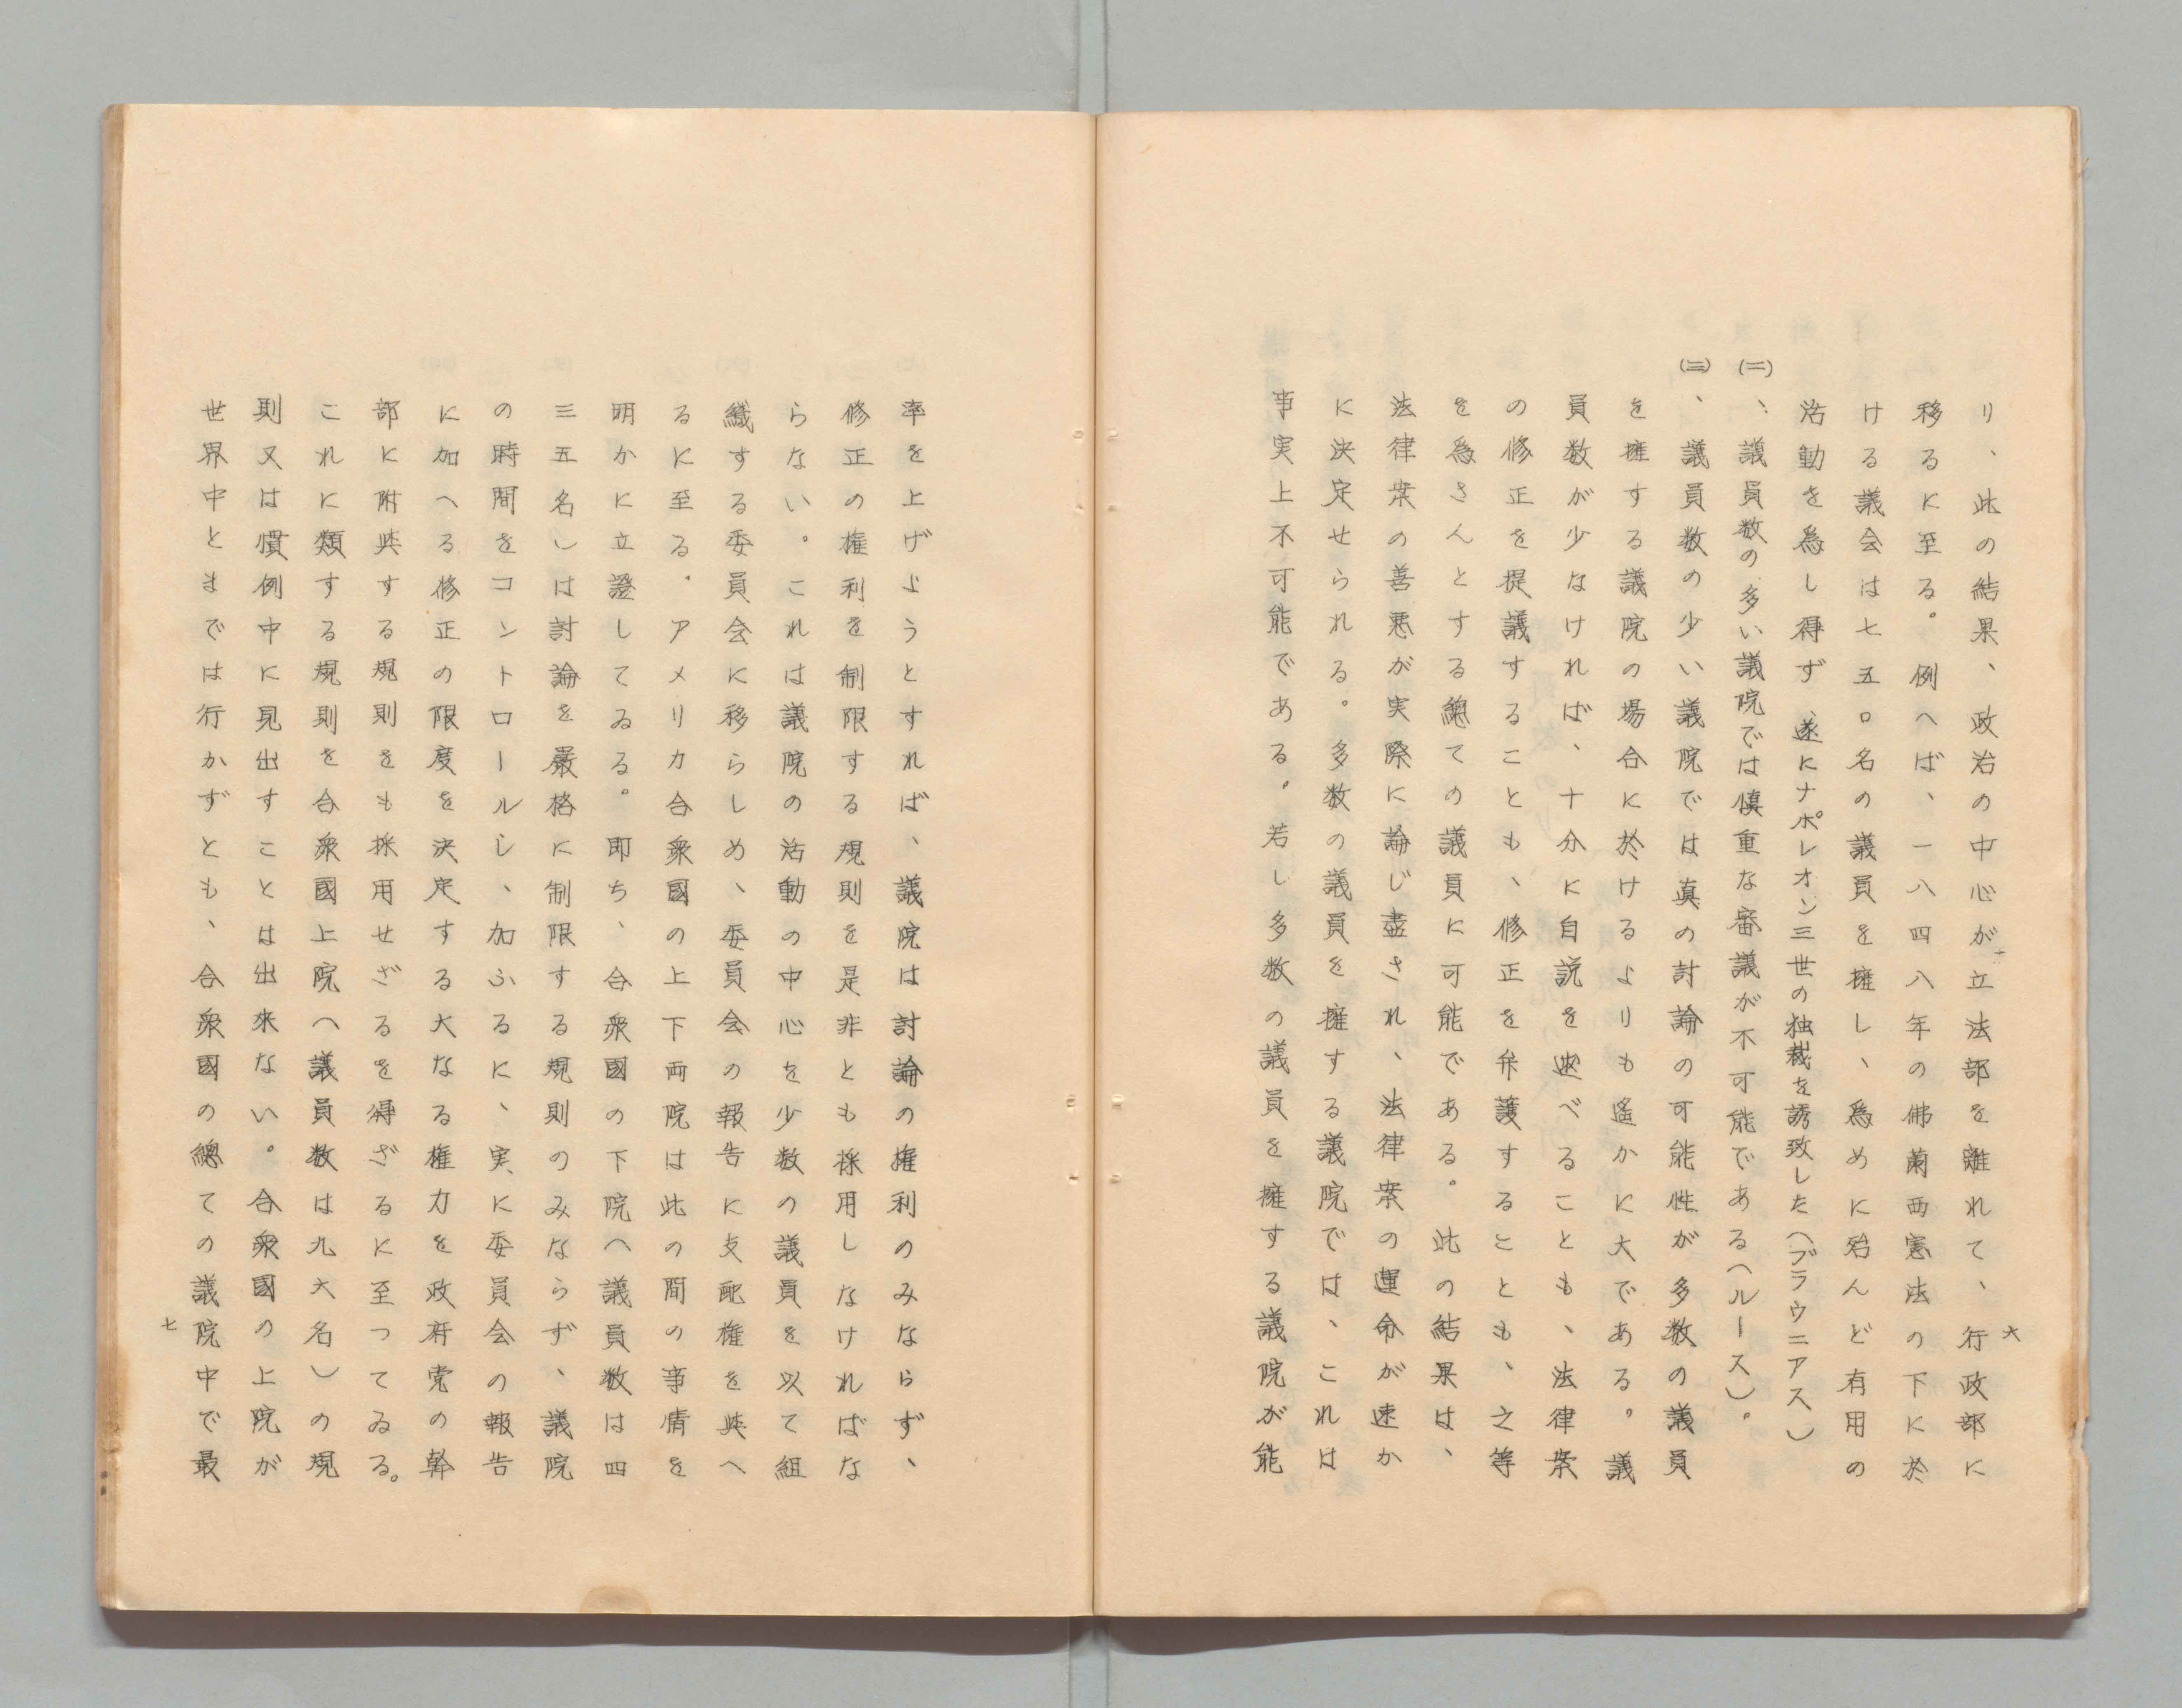 六
り、此の結果、政治の中心が立法部を離れて、行政部に
移るに至る。例へば、一八四八年の佛蘭西憲法の下に於
ける議会は七五〇名の議員を擁し、爲めに殆んど有用の
活動を爲し得ず、遂にナポレオン三世の独裁を誘致した（ブラウニアス）
(二)、議員数の多い議院では慎重な審議が不可能である（ルース）。
(三)、議員数の少い議院では真の討論の可能性が多数の議員
を擁する議院の場合に於けるよりも遙かに大である。議
員数が少なければ、十分に自説を述べることも、法律案
の修正を提議することも、修正を弁護することも、之等
を爲さんとする總ての議員に可能である。此の結果は、
法律案の善悪が実際に論じ盡され、法律案の運命が速か
に決定せられる。多数の議員を擁する議院では、これは
事実上不可能である。若し多数の議員を擁する議院が能
率を上げようとすれば、議院は討論の権利のみならず、
修正の権利を制限する規則を是非とも採用しなければな
らない。これは議院の活動の中心を少数の議員を以て組
織する委員会に移らしめ、委員会の報告に支配権を與へ
るに至る。アメリカ合衆國の上下両院は此の間の事情を
明かに立證してゐる。即ち、合衆國の下院（議員数は四
三五名）は討論を嚴格に制限する規則のみならず、議院
の時間をコントロールし、加ふるに、実に委員会の報告
に加へる修正の限度を決定する大なる権力を政府党の幹
部に附與する規則をも採用せざるを得ざるに至つてゐる。
これに類する規則を合衆國上院（議員数は九六名）の規
則又は慣例中に見出すことは出來ない。合衆國の上院が
世界中とまでは行かずとも、合衆國の總ての議院中で最
七